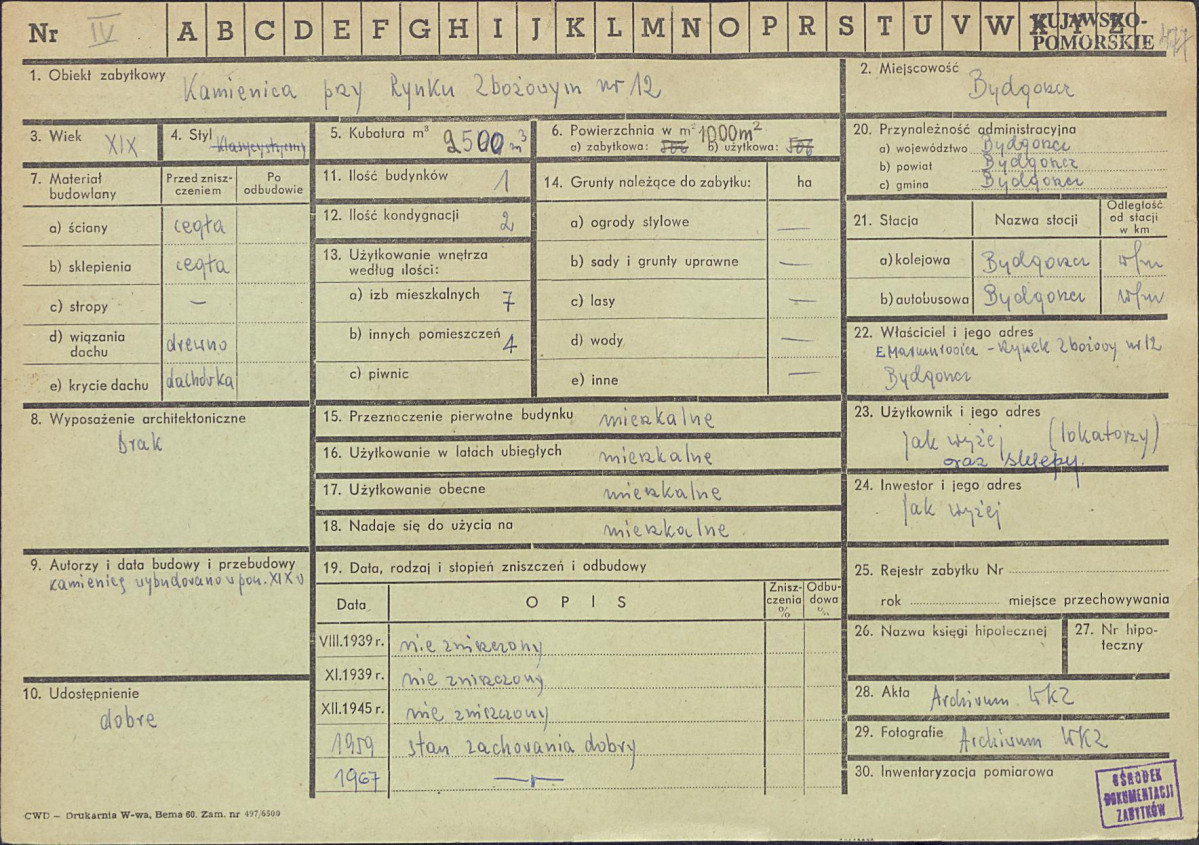 Nr IV A B C D E F G H I J K L M N O P R S T U V W X Y Z KUJAWSKO-
POMORSKIE 477
1. Obiekt zabytkowy Kamienica przy Rynku Zbożowym nr 12
2. Miejscowość Bydgoszcz
3. Wiek XIX
4. Styl klasycystyczny
5. Kubatura m³ 2500 m³
6. Powierzchnia w m² 1000m²
a) zabytkowa: 500 b) użytkowa: 500
7. Materiał budowlany
Przed zniszczeniem
Po odbudowie
a) ściany cegła
b) sklepienia cegła
c) stropy —
d) wiązania dachu drewno
e) krycie dachu dachówka
8. Wyposażenie architektoniczne
brak
9. Autorzy i data budowy i przebudowy
kamienicę wybudowano w poł. XIX w
10. Udostępnienie
dobre
11. Ilość budynków 1
12. Ilość kondygnacji 2
13. Użytkowanie wnętrza
według ilości:
a) izb mieszkalnych 7
b) innych pomieszczeń 4
c) piwnic
14. Grunty należące do zabytku: ha
a) ogrody stylowe —
b) sady i grunty uprawne —
c) lasy —
d) wody —
e) inne —
15. Przeznaczenie pierwotne budynku mieszkalne
16. Użytkowanie w latach ubiegłych mieszkalne
17. Użytkowanie obecne mieszkalne
18. Nadaje się do użycia na mieszkalne
19. Data, rodzaj i stopień zniszczeń i odbudowy
Data OPIS Zniszczenia % Odbudowa %
VIII.1939 r. nie zniszczony
XI.1939 r. nie zniszczony
XII.1945 r. nie zniszczony
1959 stan zachowania dobry
1967 —"—
20. Przynależność administracyjna
a) województwo Bydgoszcz
b) powiat Bydgoszcz
c) gmina Bydgoszcz
21. Stacja Nazwa stacji Odległość od stacji w km
a) kolejowa Bydgoszcz
b) autobusowa Bydgoszcz
22. Właściciel i jego adres
Rynek Zbożowy nr 12
Bydgoszcz
23. Użytkownik i jego adres
jak wyżej (lokatorzy)
oraz sklepy.
24. Inwestor i jego adres
jak wyżej
25. Rejestr zabytku Nr
rok miejsce przechowywania
26. Nazwa księgi hipotecznej
27. Nr hipoteczny
28. Akta Archiwum WKZ
29. Fotografie Archiwum WKZ
30. Inwentaryzacja pomiarowa
OŚRODEK
DOKUMENTACJI
ZABYTKÓW
CWD — Drukarnia W-wa, Bema 60. Zam. nr 497/6500